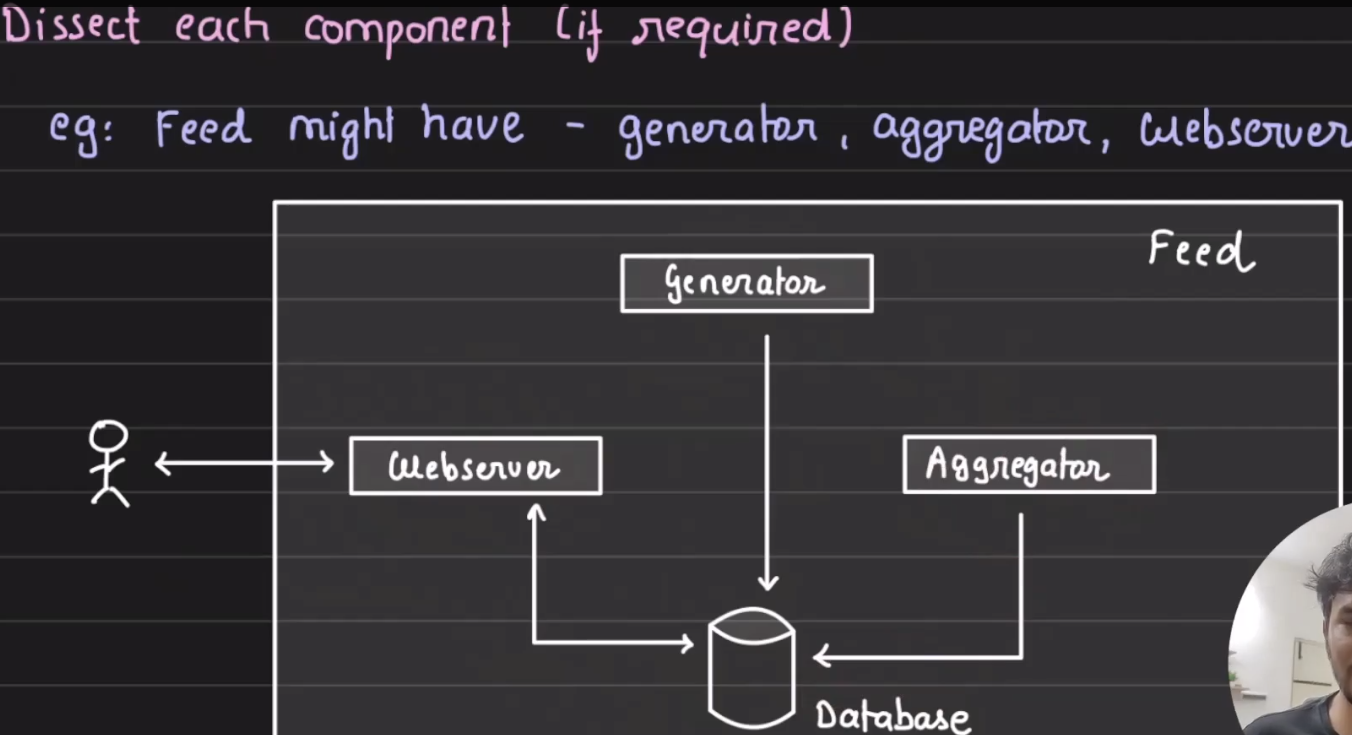 Dissect each component (if required)
eg: Feed might have - generator, aggregator, Webserver
Feed
Generator
Webserver
Aggregator
Database